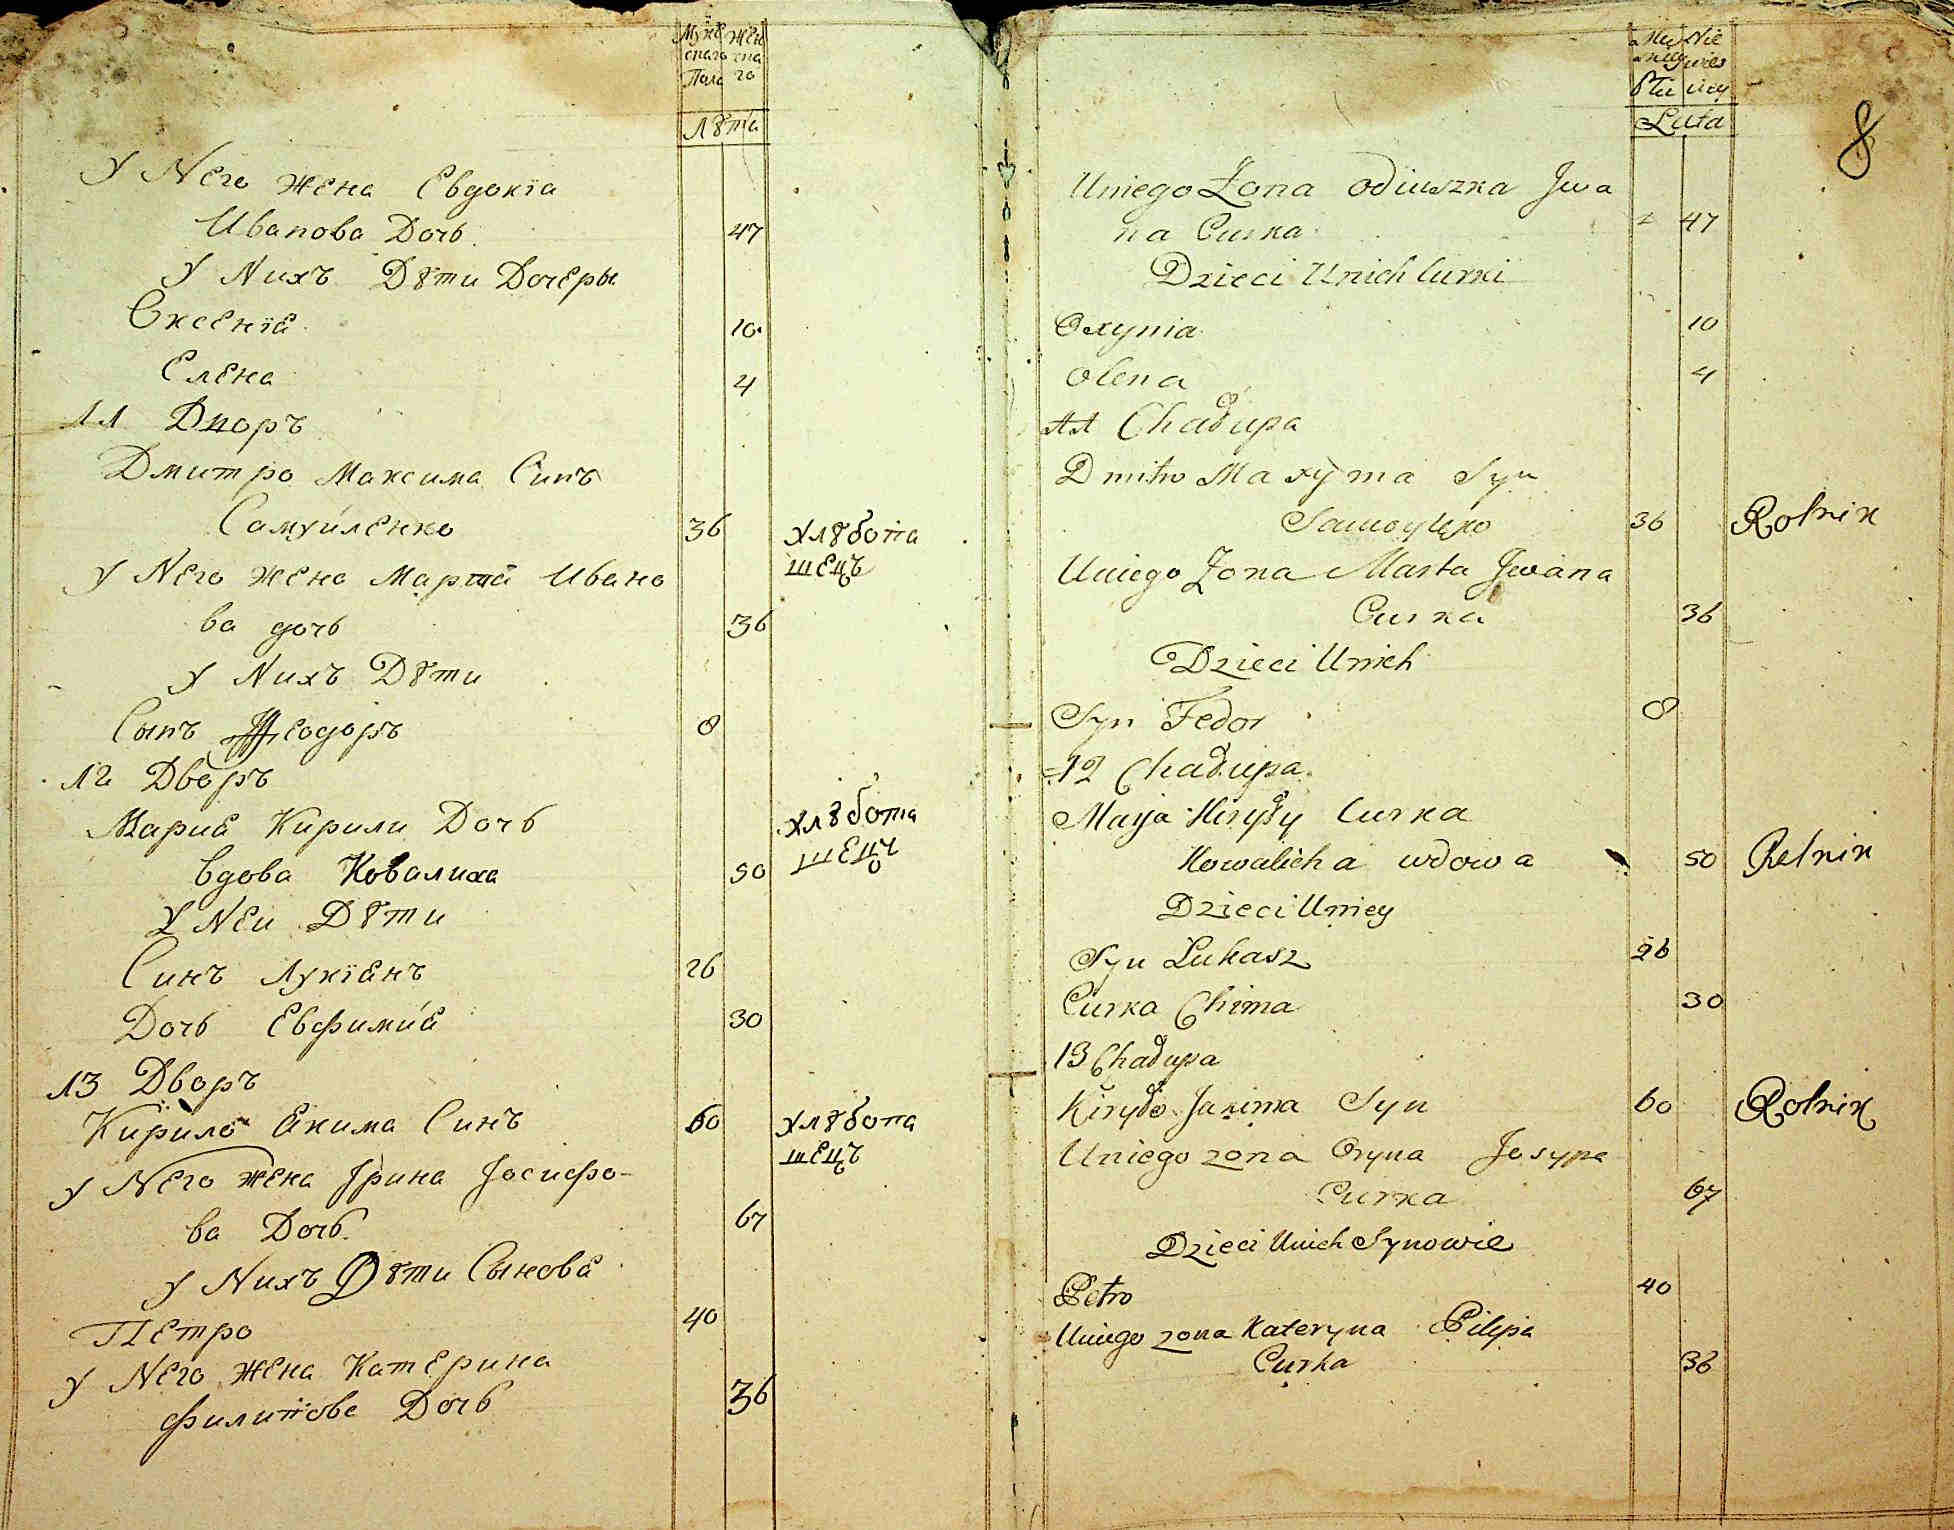 Мужескаго Пола
Женскаго
Лѣта
У Него жена Евдокїа
Иванова Дочь 47
У Нихъ Дѣти Дочеры
Ѯсенїа 10
Елена 4
11 Дворъ
Дмитро Максима Синъ
Самуйленко 36 хлѣбопа
шецъ
У Него жена Марта Ивано
ва дочь 36
У Нихъ Дѣти
Сынъ Феодоръ 8
12 Дворъ
Мариа Кирили Дочь хлѣбопа
вдова Ковалиха 50 шецъ
У Неи Дѣти
Синъ Лукїанъ 26
Дочь Евфимиа 30
13 Дворъ
Кирило Екима Синъ 60 хлѣбопа
шецъ
У Него жена Ірина Іосифо-
ва Дочь 67
У Нихъ Дѣти Сынове
Петро 40
У Него жена Катерина
Филипова Дочь 36
8
Luta
Uniego Żona Odiuszka Jwa
na Curka 47
Dzieci Unich Curki
Oxynia 10
Olena 4
11 Chałupa
Dmitro Maxyma Syn
Samoylęko 36 Rolnik
Uniego Żona Marta Jwana
Curka 36
Dzieci Unich
Syn Fedor 8
12 Chałupa
Marja Kiryły Curka
Kowalicha wdowa 50 Rolnik
Dzieci Uniey
Syn Łukasz 26
Curka Chima 30
13 Chałupa
Kiryło Jakima Syn 60 Rolnik
Uniego zona Oryna Josypa
Curka 67
Dzieci Unich Synowie
Petro 40
Uniego zona Kateryna Pilipa
Curka 36